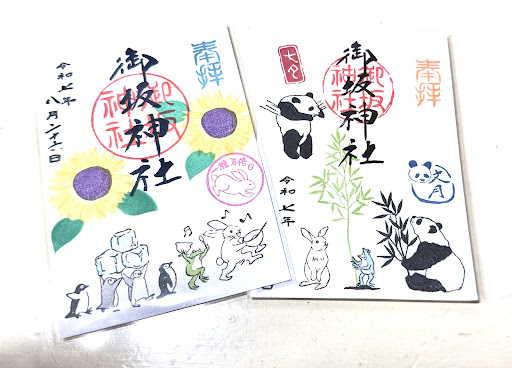 奉拝
御坂神社
御坂神社
令和七年
八月二十六日
一粒万倍日
奉拝
御坂神社
御坂神社
七夕
令和七年
文月